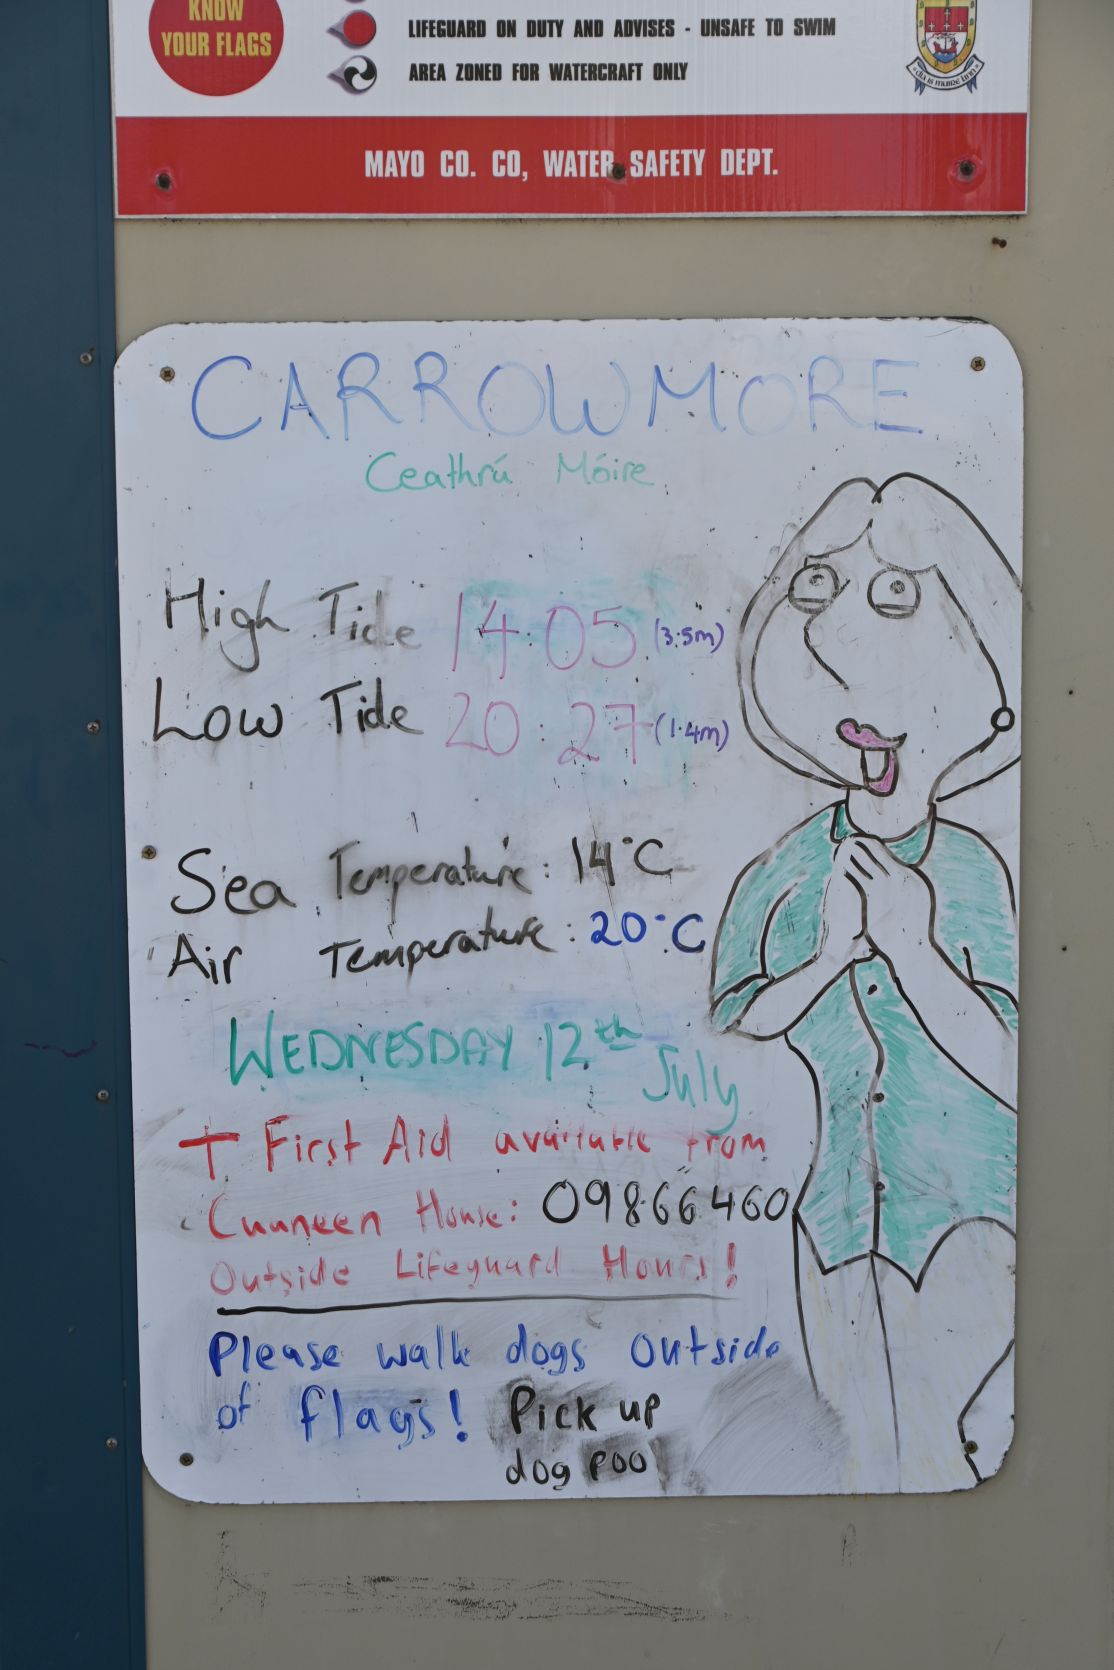 KNOW
YOUR FLAGS
LIFEGUARD ON DUTY AND ADVISES - UNSAFE TO SWIM
AREA ZONED FOR WATERCRAFT ONLY
MAYO CO. CO, WATER SAFETY DEPT.
CARROWMORE
Ceathrú Móire
High Tide 14:05 (3.5m)
Low Tide 20:27 (1.4m)
Sea Temperature: 14°C
Air Temperature: 20°C
WEDNESDAY 12th July
First Aid available from
Cuuneen House: 09866460
Outside Lifeguard Hours!
Please walk dogs outside
of flags! Pick up
dog poo